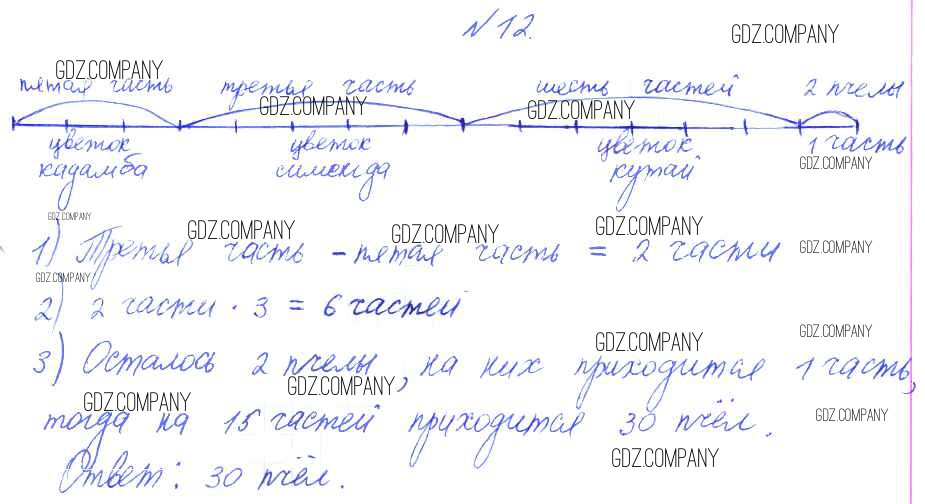 № 12.
GDZ.COMPANY
GDZ.COMPANY
пятая часть третья часть шесть частей 2 пчелы
GDZ.COMPANY GDZ.COMPANY
цветок цветок цветок 1 часть
кадамба сименгда кутай GDZ.COMPANY
GDZ.COMPANY
GDZ.COMPANY GDZ.COMPANY GDZ.COMPANY
1) Третья часть - пятая часть = 2 части GDZ.COMPANY
GDZ.COMPANY
2) 2 части · 3 = 6 частей
GDZ.COMPANY GDZ.COMPANY
3) Осталось 2 пчелы, на них приходится 1 часть,
GDZ.COMPANY
GDZ.COMPANY GDZ.COMPANY
тогда на 15 частей приходится 30 пчёл.
GDZ.COMPANY
Ответ: 30 пчёл.